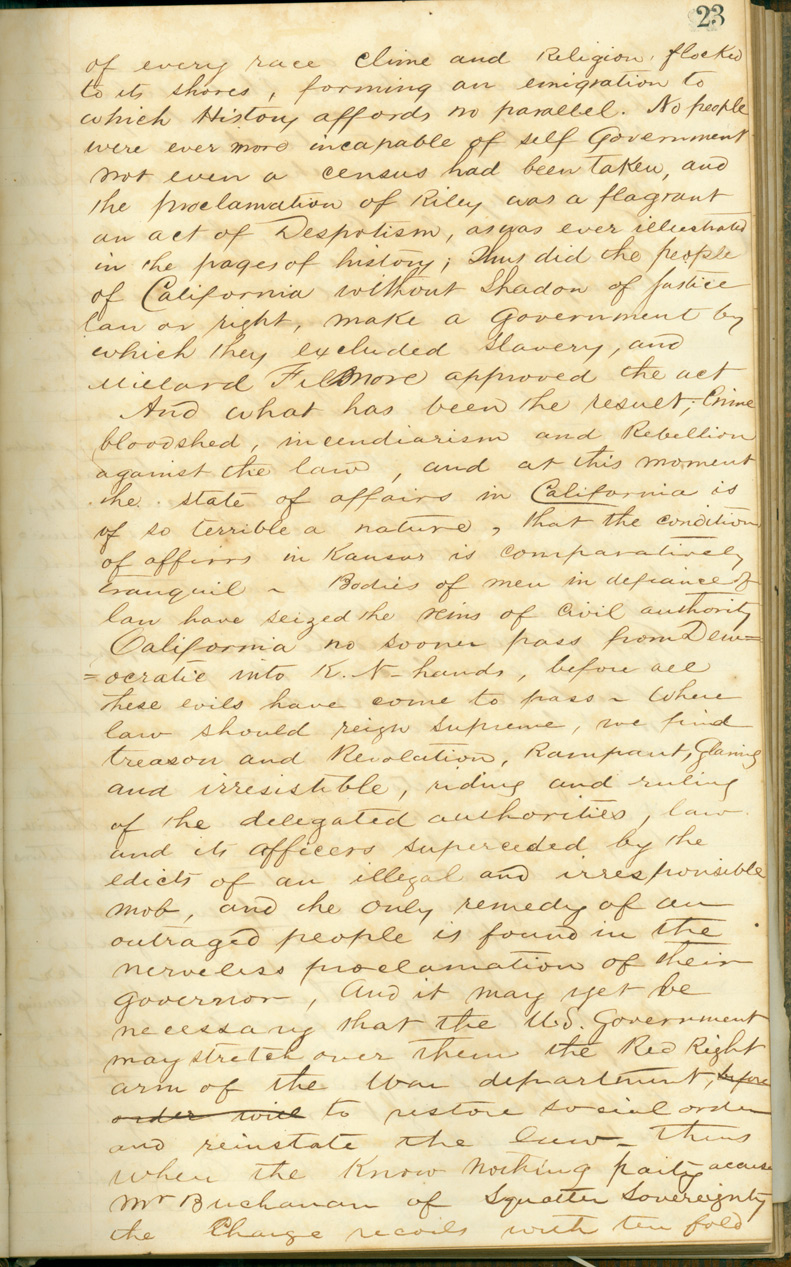 23
of every race clime and Religion, flocked
to its shores, forming an emigration to
which History affords no parallel. No people
were ever more incapable of self Government
not even a census had been taken, and
the proclamation of Riley was a flagrant
an act of Despotism, as was ever illustrated
in the pages of history; Thus did the people
of California without Shadow of Justice
law or right, make a Government by
which they excluded slavery, and
Millard Fillmore approved the act
And what has been the result; Crime
bloodshed, incendiarism and Rebellion
against the law, and at this moment
the state of affairs in California is
of so terrible a nature, that the condition
of affirs in Kansas is comparatively
tranquil - Bodies of men in defiance of
law have seized the reins of civil authority
California no sooner pass from Dem=
=ocratic into K. N- hands, before all
these evils have come to pass - Where
law should reign supreme, we find
treason and Revolution, Rampant, Glaring
and irresistible, riding and ruling
of the delegated authorities, law
and its officers superceded by the
edicts of an illegal and irresponsible
mob, and the only remedy of an
outraged people is found in the
nerveless proclamation of their
governor, And it may yet be
necessary that the U.S. Government
may stretch over them the Red Right
arm of the War department, before
order will to restore social order
and reinstate the law - Thus
when the Know Nothing party accuse
Mr Buchanan of Squatter Sovereignty
the Charge recoils with ten fold